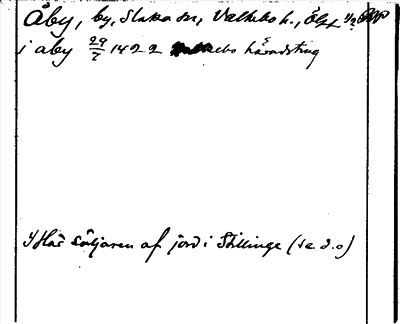 Åby, by, Slaka sn, Valkebo h., Ögl
i aby 29/7 1422 häradsting
Här säljaren af jord i Skillinge (se d.o)